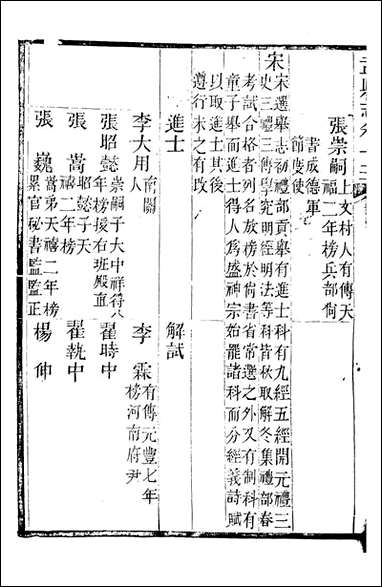 張崇嗣上文村人有傳天
禧二年榜兵部尚
書成德軍
節度使
宋
宋選舉志初禮部貢舉有進士科有九經五經開元禮三
史三禮三傳學究明經明法等科皆秋取解冬集禮部春
考試合格者列名放榜於尚書省常選之外又有制科有
童子舉而進士得人爲盛神宗始罷諸科而分經義詩賦
以取進士其後
遵行未之有改
進士
解試
李大用南關
人
李霖有傳元豐七年
榜河南府尹
張昭懿崇嗣子大中祥符八
年榜援右班殿直
翟時中
張嵩昭懿子天
禧二年榜
翟執中
張巍嵩弟天禧二年榜
累官秘書監監正
楊仲